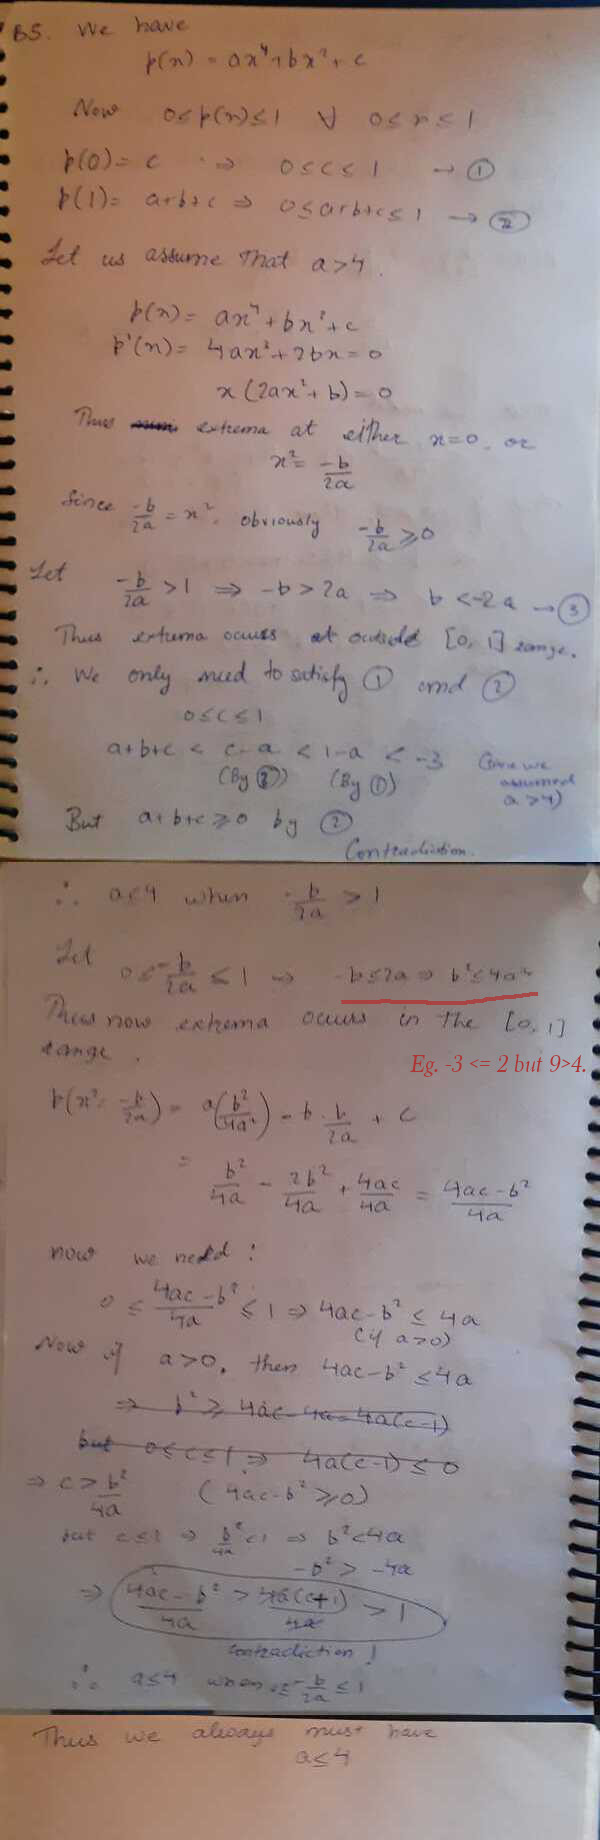 B5. We have
p(x) = ax⁴+bx²+c
Now 0≤p(x)≤1 ∀ 0≤x≤1
p(0)= c ⇒ 0≤c≤1 → ①
p(1)= a+b+c ⇒ 0≤a+b+c≤1 → ②
Let us assume that a>4.
p(x)= ax⁴+bx²+c
p'(x)= 4ax³+2bx=0
x(2ax²+b)=0
Thus extrema at either x=0 or
x²= -b/2a
Since -b/2a = x², obviously -b/2a ≥0
Let -b/2a >1 ⇒ -b>2a ⇒ b<-2a →③
Thus extrema occurs at outside [0,1] range.
∴ We only need to satisfy ① and ②
0≤c≤1
a+b+c < c-a < 1-a < -3 (Since we
(By ③) (By ①) assumed
a>4)
But a+b+c≥0 by ②
Contradiction.
∴ a≤4 when -b/2a > 1
Let 0≤-b/2a ≤1 ⇒ -b≤2a ⇒ b²≤4a²
Thus now extrema occurs in the [0,1]
range.
Eg. -3 <= 2 but 9>4.
p(x²= -b/2a) = a(b²/4a²) - b·b/2a + c
= b²/4a - 2b²/4a + 4ac/4a = 4ac-b²/4a
now we need:
0 ≤ 4ac-b²/4a ≤1 ⇒ 4ac-b² ≤ 4a
(if a>0)
Now if a>0, then 4ac-b² ≤4a
⇒ b² ≥ 4ac-4a = 4a(c-1)
but 0≤c≤1 ⇒ 4a(c-1) ≤ 0
⇒ c> b²/4a (4ac-b²≥0)
but c≤1 ⇒ b²/4a <1 ⇒ b²<4a
-b²> -4a
⇒ 4ac-b²/4a > 4a(c+1)/4a >1
Contradiction!
∴ a≤4 when 0≤-b/2a ≤1
Thus we always must have
a≤4